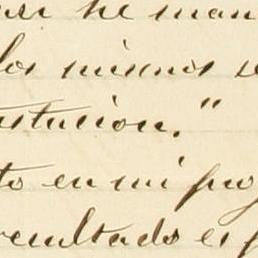 se man
los mismos se
titucion."
to en mi proy
resultado es p